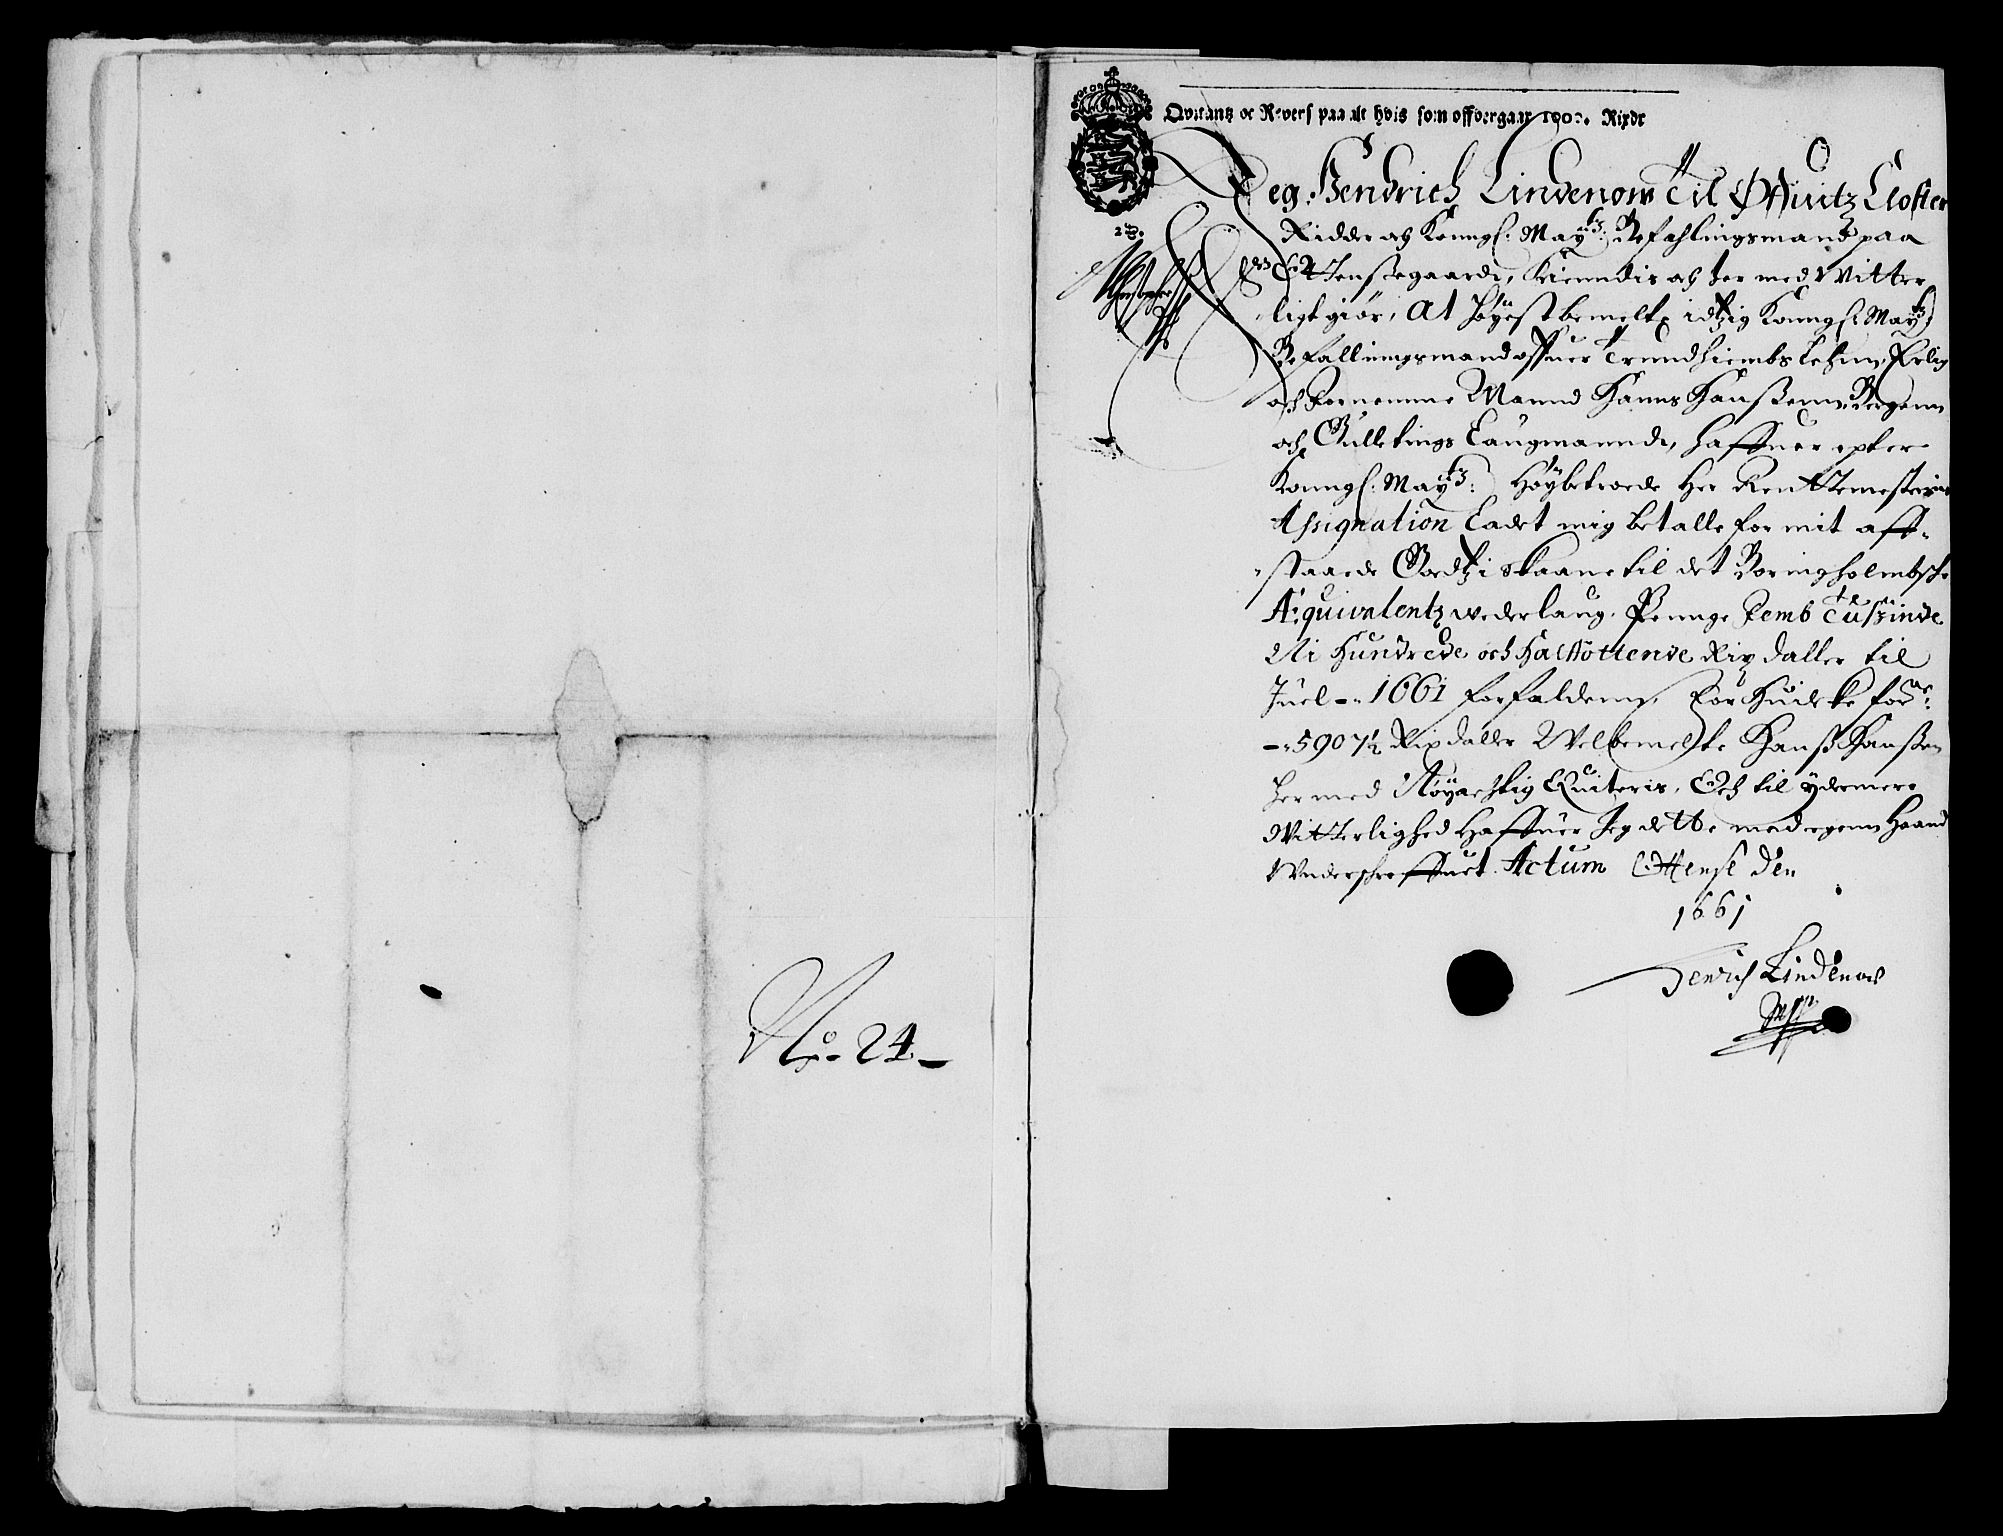 No. 24
Qvitantz oc Revers paa alt hvis som offvergaar 1000. Rixdr
Jeg Hendrich Lindenow Til Øffuitz Closter
Ridder och Konngl: Maytz: Befahlingsmand paa
Ottensegaard, Kienndis och her med Witter
ligt giør, At høyestbemelte itzig Konngl: Maytz
Befallinngsmand offuer Trundhiembs Lehnn, Erlig
och Fornemme Mannd Hanns Hanßenn, Bergenn
och Gulletings Laugmannd, haffuer epter
Konngl: Maytz: Høybetroede Her Renttemesteris
Assignation Ladet mig betalle for mit aff-
staaede Goedtz i Skaane til det Boringholmbsche
Æquivalentz wederlaug, Pennge Femb Tußinde
Ni Hundrede och Halfottende Rix daller til
Juel 1661 forfaldenn, For huilcke forne:
5907½ Rixdaller Welbemelte Hanß Hanßen
hermed Nøyachtig Quiteris, Och til ydermere
Witterlighed Haffuer Jeg dette med egenn Haand
Wnderschreffuet. Actum Ottense den
1661
Henrich Lindenow